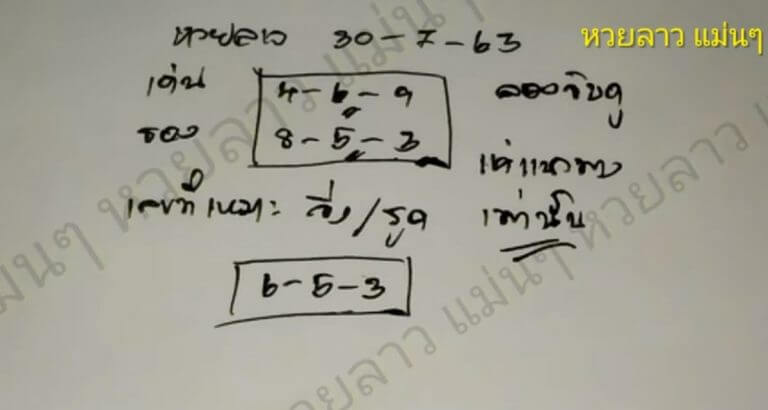 หวยลาว 30-7-63 หวยลาว แม่นๆ
เด่น 4-6-9 ลองจับดู
รอง 8-5-3
แค่แนวทาง
เลขที่เหมาะ วิ่ง/รูด เท่านั้น
6-5-3
หวยลาว แม่นๆ หวยลาว แม่นๆ
หวยลาว แม่นๆ หวยลาว